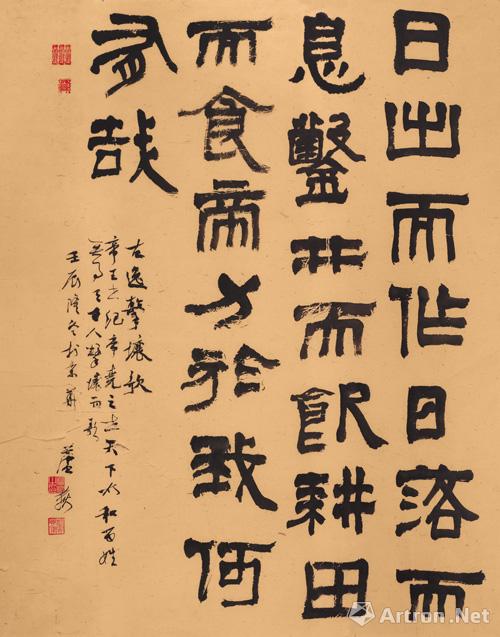 日出而作日落而
息鑿井而飲耕田
而食帝力於我何
有哉
古逸擊壤歌
帝王之纪帝堯之世天下大和百姓
無事人擊壤而歌
壬辰隆冬於京華
Artron.Net